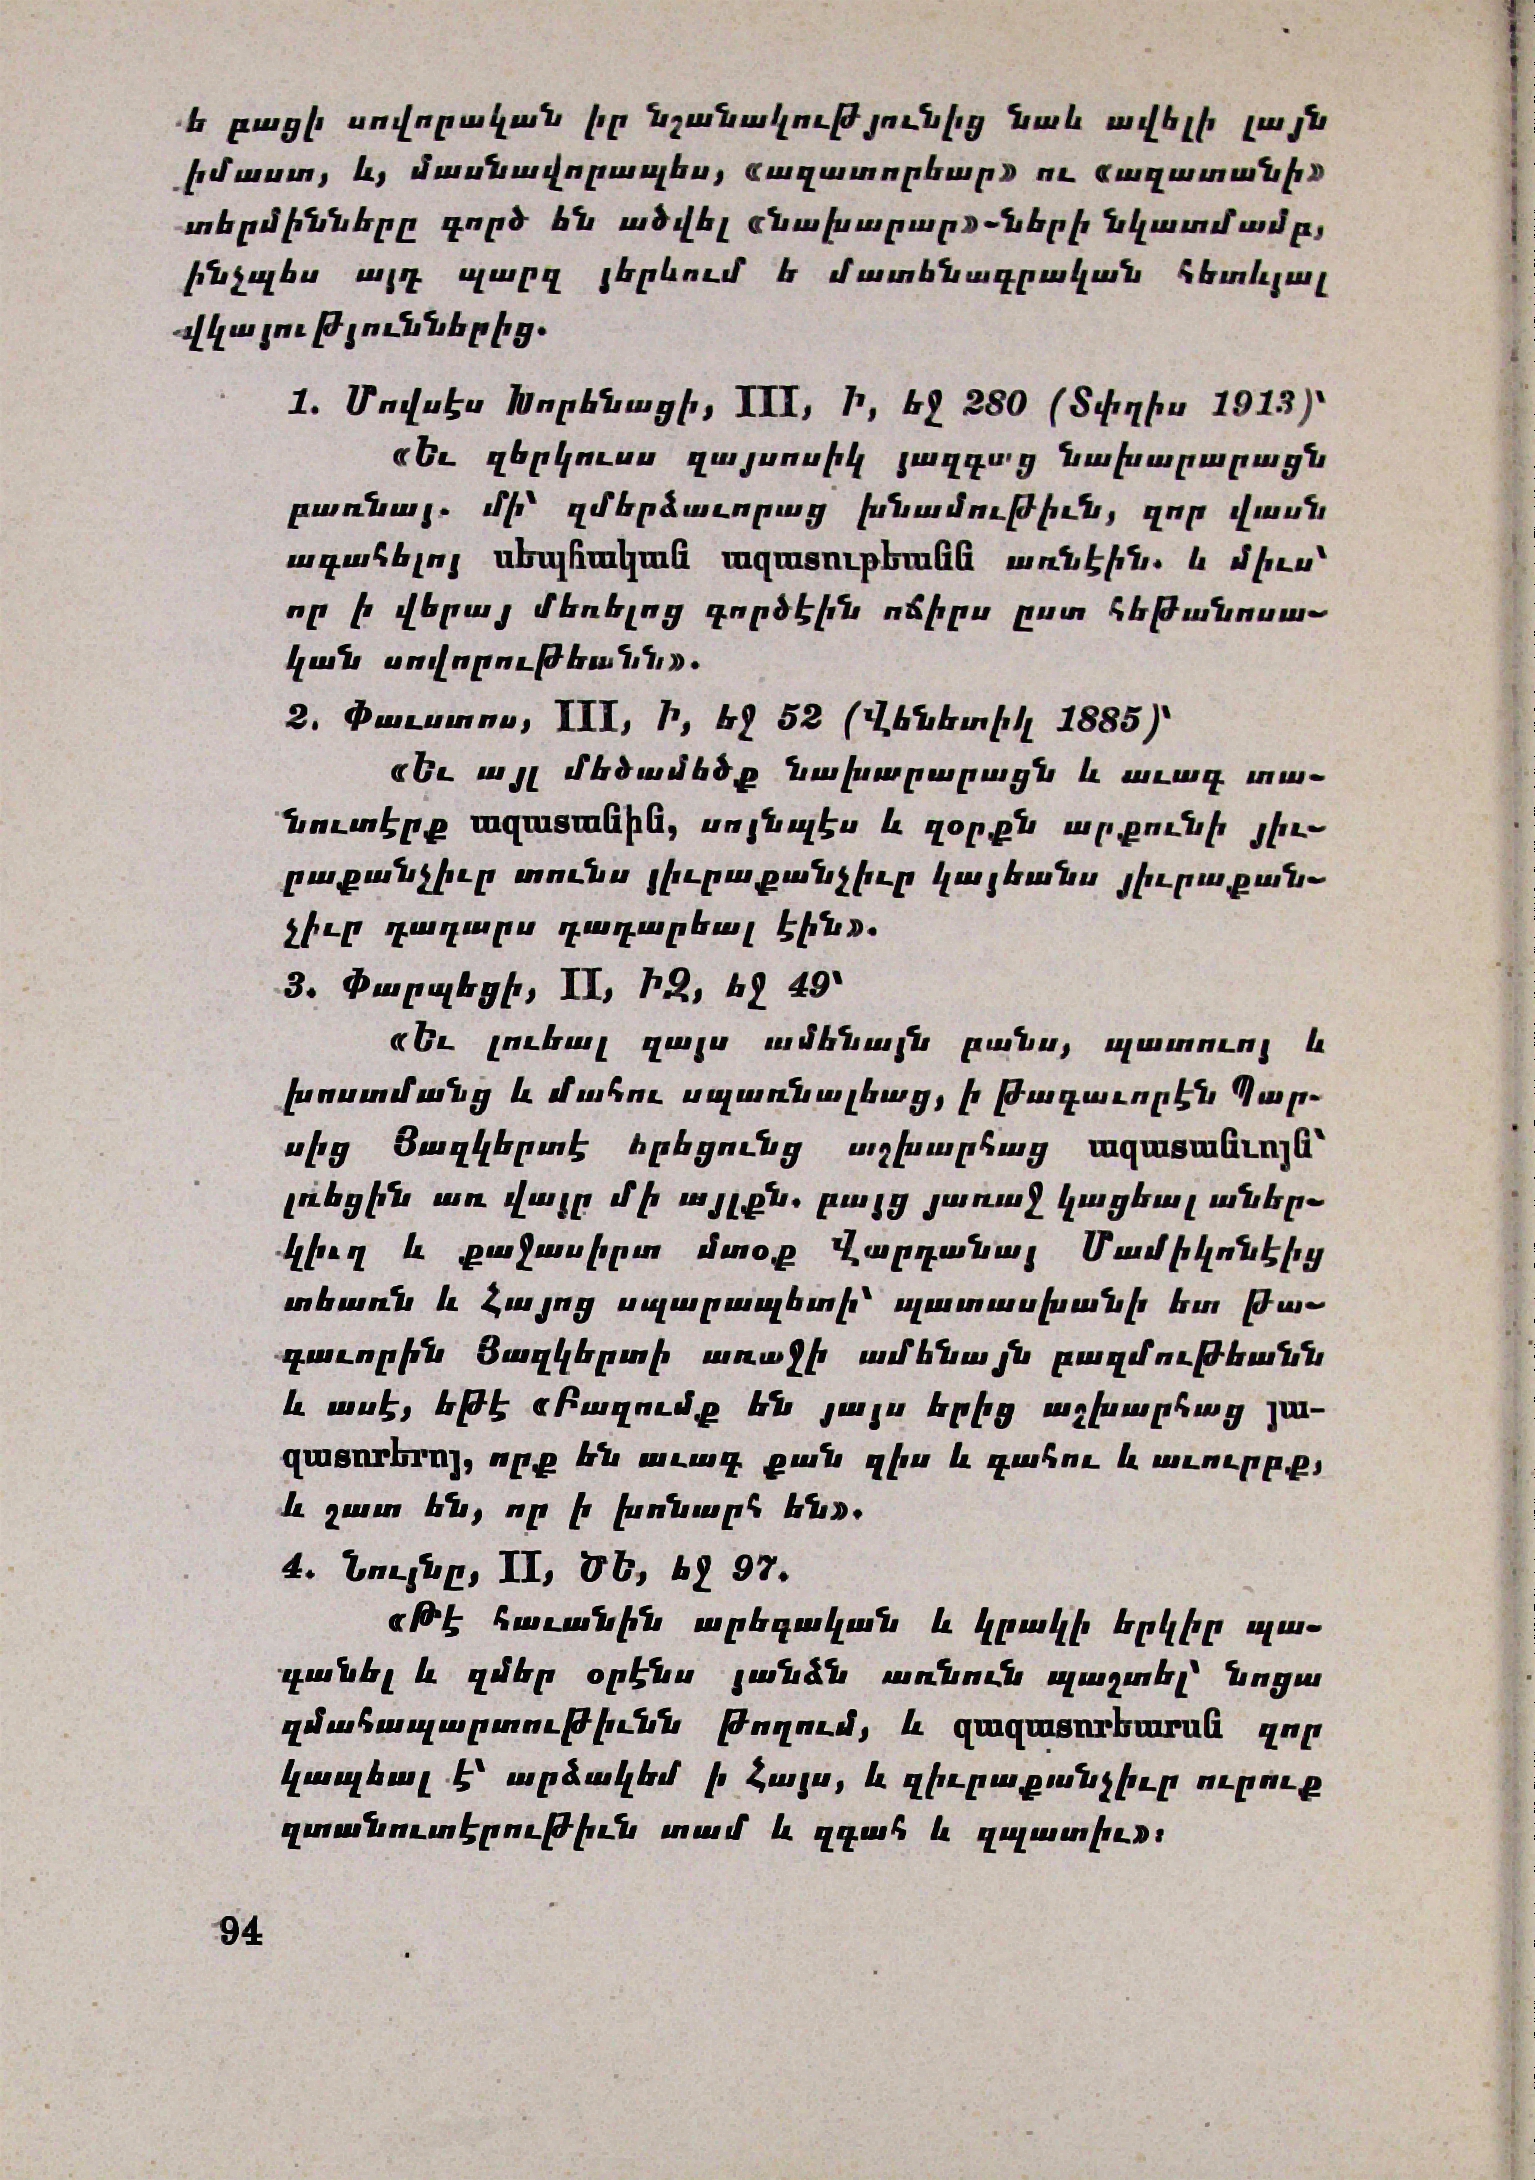 ե բացի սովորական իր նշանակությունից նաև ավելի լայն
իմաստ, և, մասնավորապես, «ազատորեար» ու «ազատանի»
տերմինները գործ են ածվել «նախարար»-ների նկատմամբ,
ինչպես այդ պարզ յերևում ե մատենագրական հետևյալ
վկայություններից.
1. Մովսէս Խորենացի, III, Ի, եջ 280 (Տփղիս 1913)՝
«Եւ զերկուսս զայսոսիկ յազգաց նախարարացն
բառնայ. մի՝ զմերձաւորաց խնամութիւն, զոր վասն
ագահելոյ սեպհական ազատութեանն առնէին. և միւս՝
որ ի վերայ մեռելոց գործէին ոճիրս ըստ հեթանոսա-
կան սովորութեանն».
2. Փաւստոս, III, Ի, եջ 52 (Վենետիկ 1885)՝
«Եւ այլ մեծամեծք նախարարացն և աւագ տա-
նուտէրք ազատանին, սոյնպէս և զօրքն արքունի յիւ-
րաքանչիւր տունս յիւրաքանչիւր կայեանս յիւրաքան-
չիւր դադարս դադարեալ էին».
3. Փարպեցի, II, ԻԶ, եջ 49՝
«Եւ լուեալ զայս ամենայն բանս, պատուոյ և
խոստմանց և մահու սպառնալեաց, ի թագաւորէն Պար-
սից Յազկերտէ երեցունց աշխարհաց ազատանւոյն՝
լռեցին առ վայր մի այլքն. բայց յառաջ կացեալ աներ-
կիւղ և քաջասիրտ մտօք Վարդանայ Մամիկոնէից
տեառն և Հայոց սպարապետի՝ պատասխանի ետ թա-
գաւորին Յազկերտի առաջի ամենայն բազմութեանն
և ասէ, եթէ «Բազումք են յայս երից աշխարհաց յա-
զատորերոյ, որք են աւագ քան զիս և գահու և աւուրբք,
և շատ են, որ ի խոնարհ են».
4. Նույնը, II, ԾԵ, եջ 97.
«Թէ հաւանին արեգական և կրակի երկիր պա-
գանել և զմեր օրէնս յանձն առնուն պաշտել՝ նոցա
զմահապարտութիւնն թողում, և զազատորեարսն զոր
կապեալ է՝ արձակեմ ի Հայս, և զիւրաքանչիւր ուրուք
զտանուտէրութիւն տամ և զգահ և զպատիւ»։
94